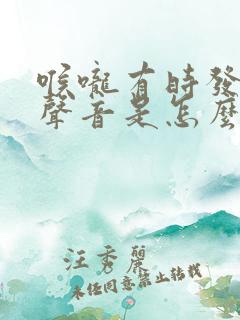 喉嚨有時發
聲音是怎麼
汪秀麗
未經同意禁止轉載